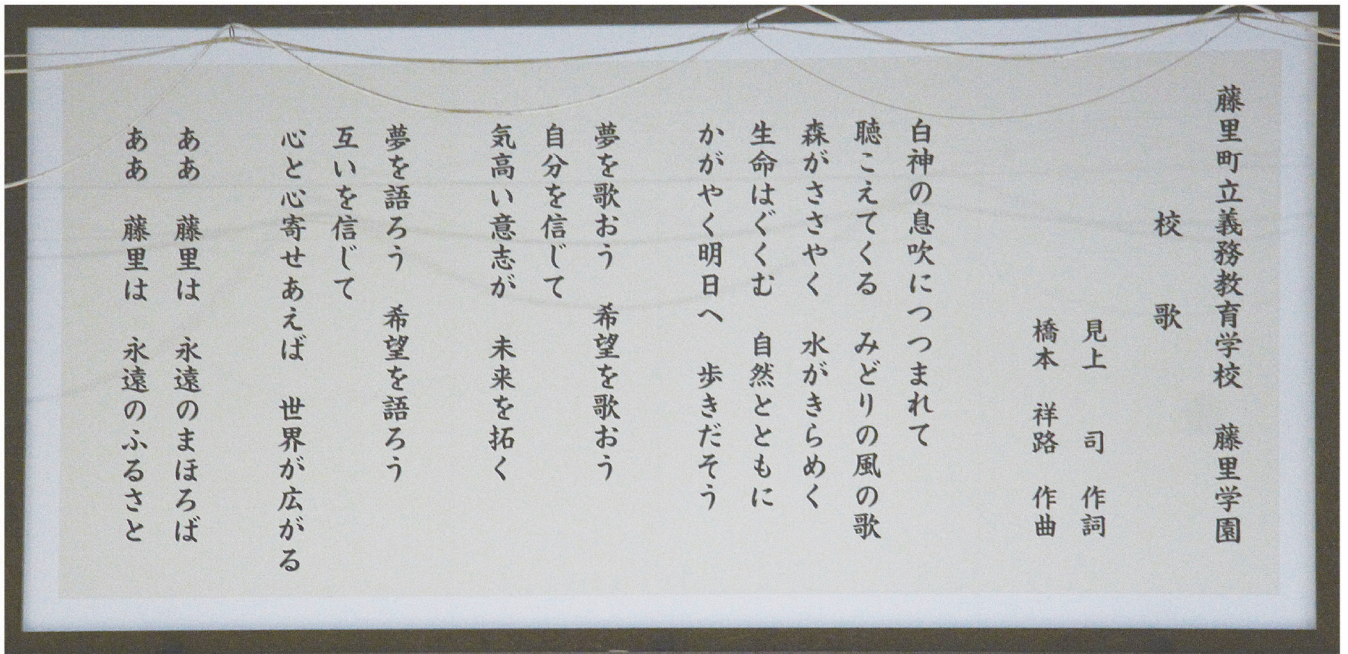 藤里町立義務教育学校　藤里学園
校　歌
見上　司　作詞
橋本　祥路　作曲
白神の息吹につつまれて
聴こえてくる　みどりの風の歌
森がささやく　水がきらめく
生命はぐくむ　自然とともに
かがやく明日へ　歩きだそう
夢を歌おう　希望を歌おう
自分を信じて
気高い意志が　未来を拓く
夢を語ろう　希望を語ろう
互いを信じて
心と心寄せあえば　世界が広がる
ああ　藤里は　永遠のまほろば
ああ　藤里は　永遠のふるさと